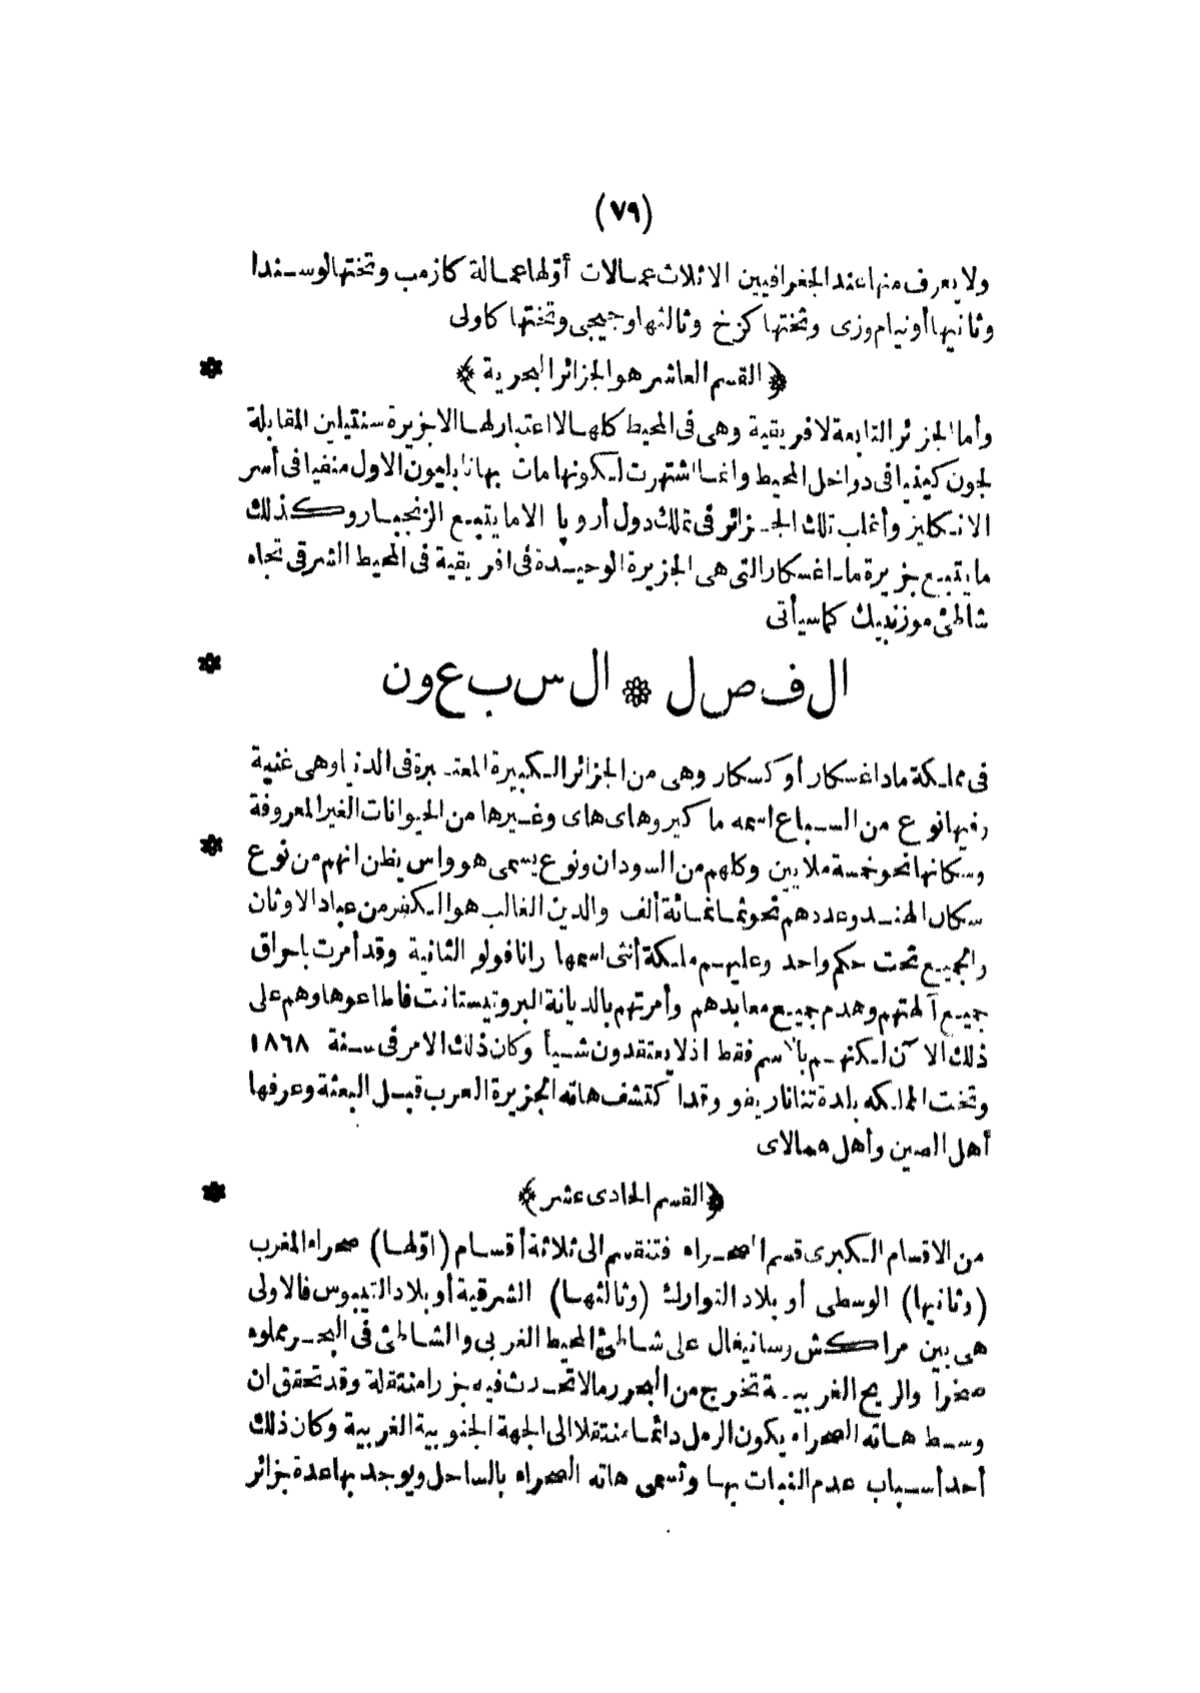 (٧٩)
ولا يعرف منها عند الجغرافيين الا ثلاث عمالات أولها عمالة كازمب وتختها لوسندا
وثانيها أونيام وزى وتختها كزخ وثالثها وجيجى وتختها كاولى
﴿ القسم العاشر هو الجزائر البحرية ﴾ *
وأما الجزائر التابعة لافريقية وهى فى المحيط كلها لا اعتبار لها الا جزيرة سنتيلين المقابلة
لجون كينيا فى دواخل المحيط وانما اشتهرت لكونها مات بها نابليون الاول منفيا فى أسر
الانكليز وأغلب تلك الجزائر فى تملك دول أروپا الا ما يتبع الزنجبار وكذلك
ما يتبع جزيرة ماداغسكار التى هى الجزيرة الوحيدة فى افريقية فى المحيط الشرقى تجاه
شاطئ موزنبيك كما سيأتى
الفصل * السبعون *
فى مملكة ماداغسكار أو كسكار وهى من الجزائر الكبيرة المعتبرة فى الدنيا وهى غنية
وفيها نوع من السباع اسمه ماكيروهاى هاى وغيرها من الحيوانات الغير المعروفة
وسكانها نحو خمسة ملايين وكلهم من السودان ونوع يسمى هوواس يظن انهم من نوع *
سكان الهند وعددهم نحو ثمانمائة ألف والدين الغالب هو الكفر من عباد الاوثان
والجميع تحت حكم واحد وعليهم ملكة أنثى اسمها رانافولو الثانية وقد أمرت باحراق
جميع آلهتهم وهدم جميع معابدهم وأمرتهم بالديانة البروتيستانت فاطاعوها وهم على
ذلك الآن لكنهم بالاسم فقط اذ لا يعتقدون شيأ وكان ذلك الامر فى سنة ١٨٦٨
وتخت المملكه بلدة تناناريفو وقد اكتشف هاته الجزيرة العرب قبل البعثة وعرفها
أهل الصين وأهل همالاى
﴿ القسم الحادى عشر ﴾ *
من الاقسام الكبرى قسم الصحراء فتنقسم الى ثلاثة أقسام (اولها) صحراء المغرب
(وثانيها) الوسطى أو بلاد التوارك (وثالثها) الشرقية أو بلاد التيبوس فالاولى
هى بين مراكش وسانيغال على شاطئ المحيط الغربى والشاطئ فى البحر مملوء
صخرا والريح الغربية تخرج من البحر رمالا تحدث فيه جزرا منتقلة وقد تحقق ان
وسط هاته الصحراء يكون الرمل دائما منتقلا الى الجهة الجنوبية الغربية وكان ذلك
أحد أسباب عدم النبات بها وتسمى هاته الصحراء بالساحل ويوجد بها عدة جزائر